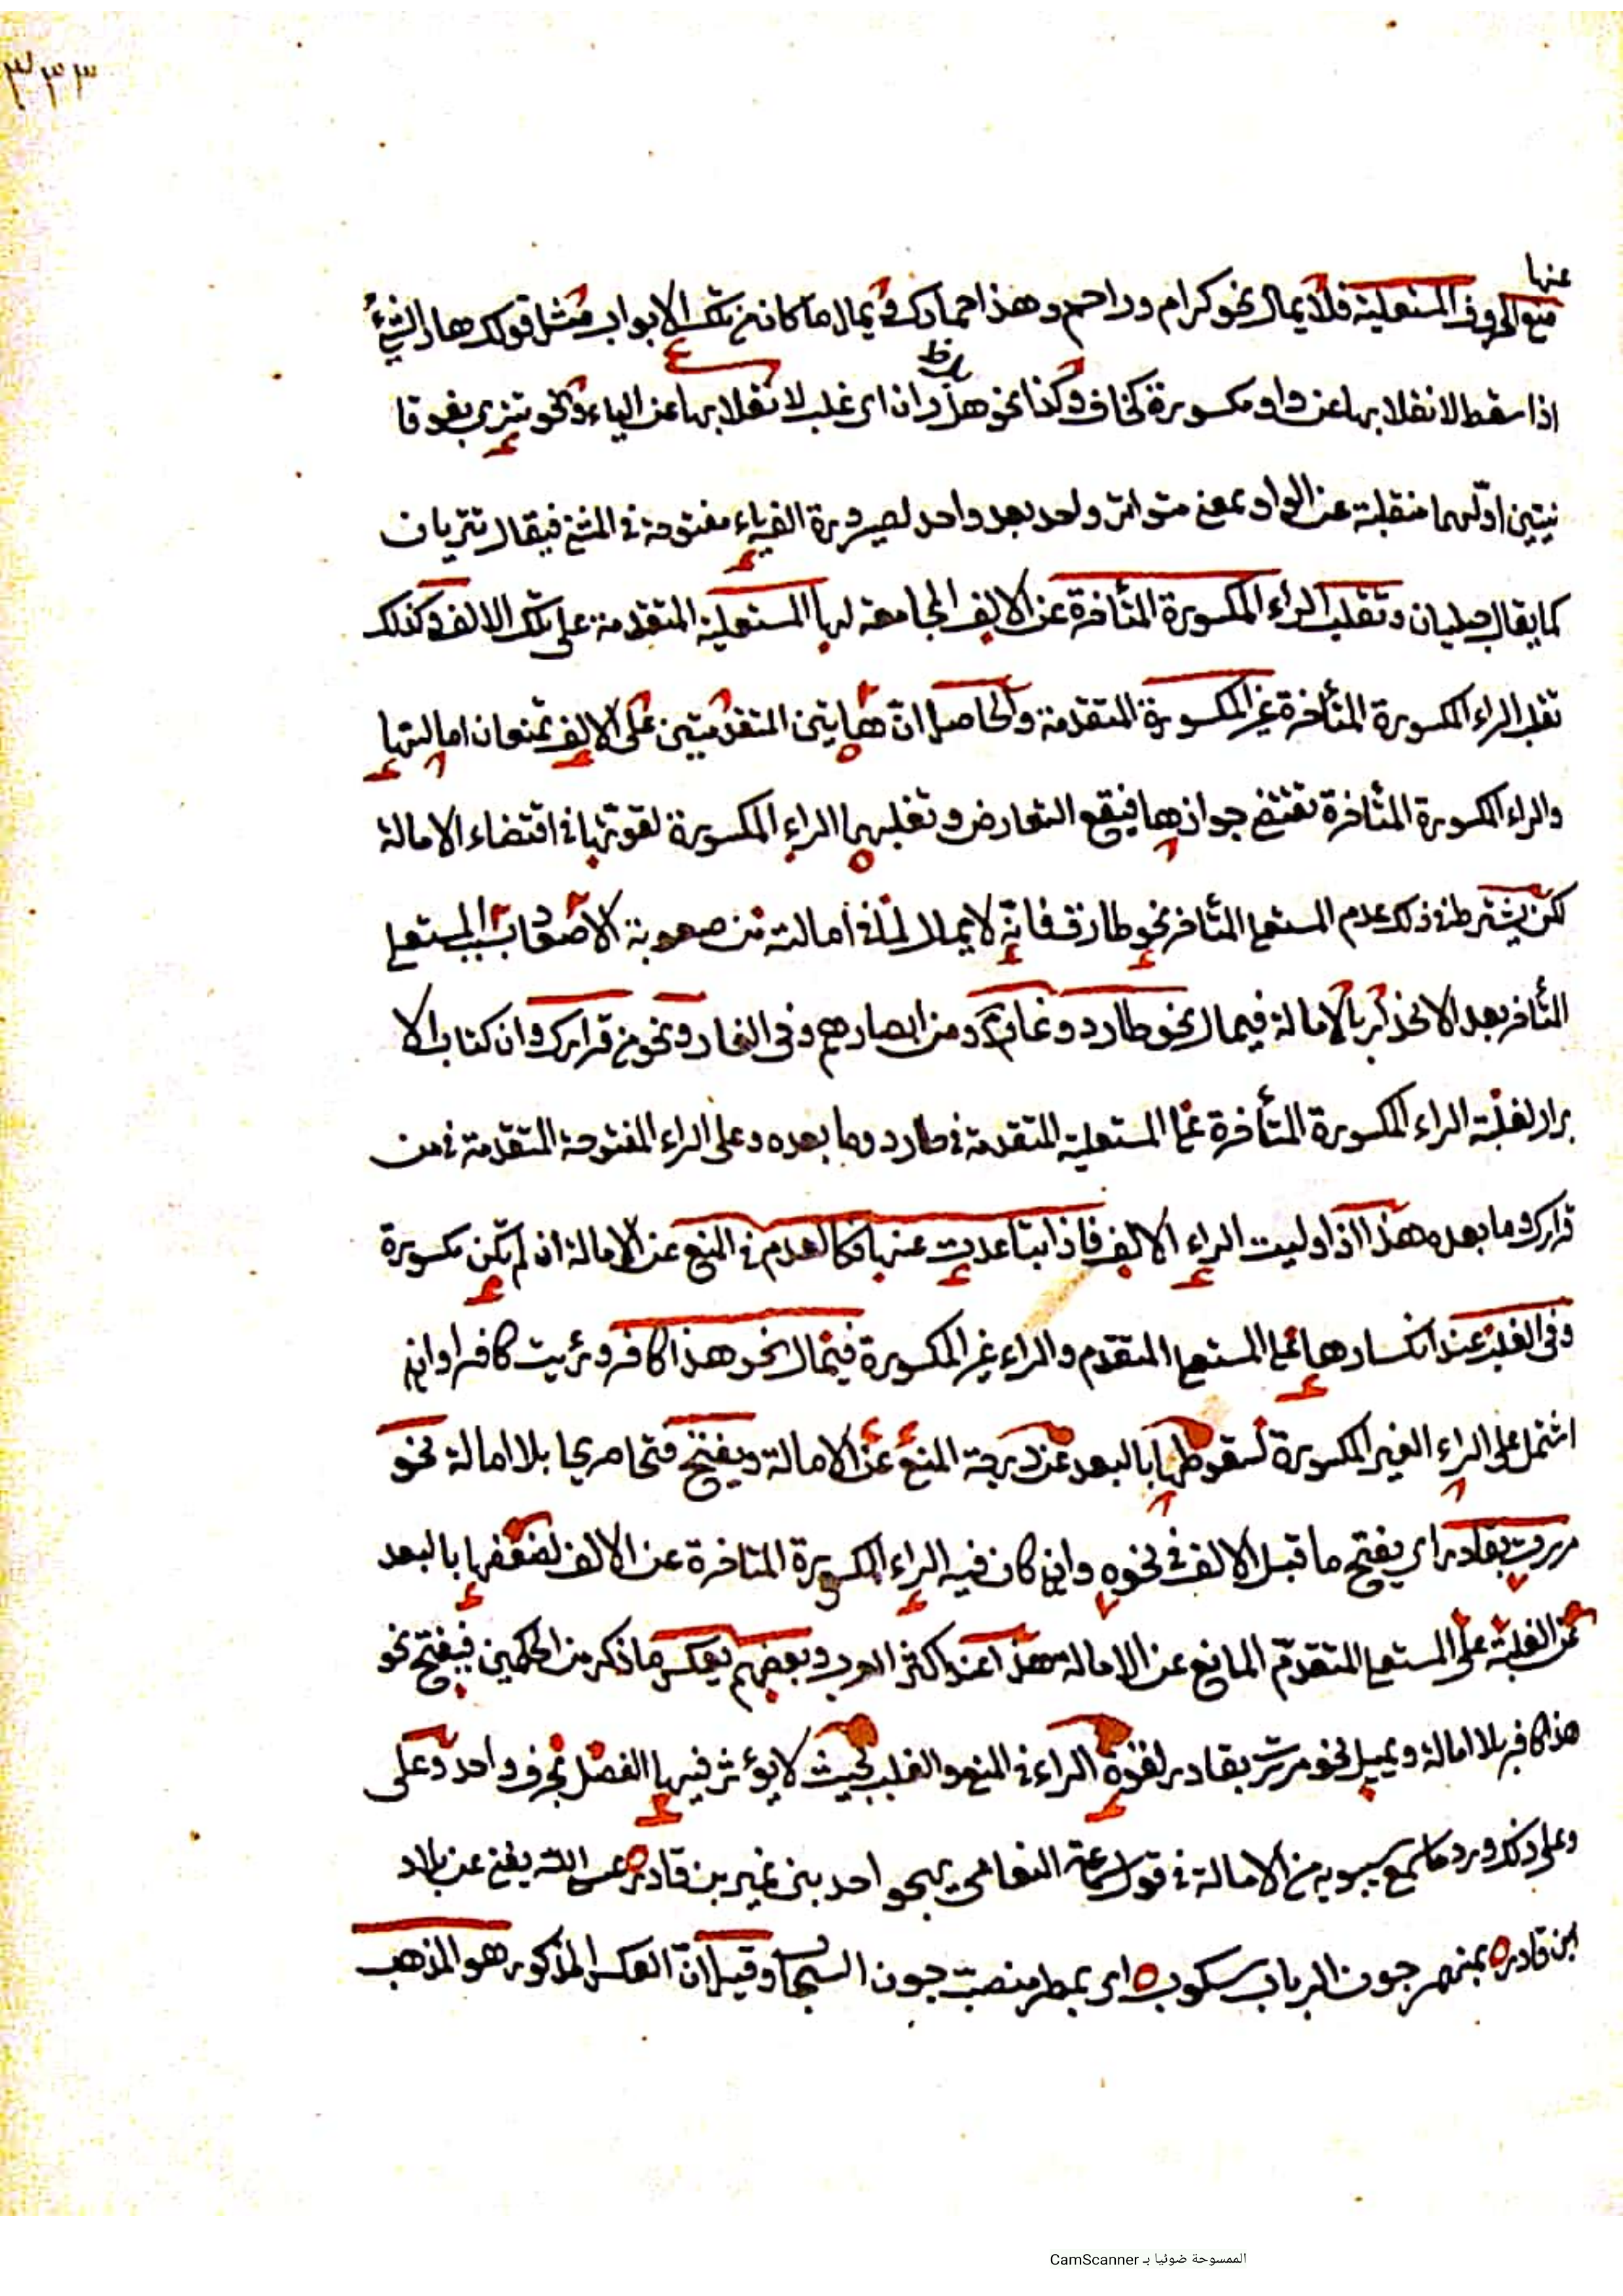 ٣٣٣
عنها
منع الحروف المستعلية فلا يمال نحو كرام وراحم وهذا حمارك ويمال ما كان من تلك الابواب مثل قولك هار الشئ
اذا سقط لانقلابها عن واو مكسورة كخاف وكذا نحو هذران اى غلب لانقلابها عن الياء ونحو تترى بفوقا
نيتين اوّلهما منقلبة عن الواو بمعنى متواتر واحد بعد واحد لصيرورة الفه ياء مفتوحة فى المثنى فيقال تتريان
كما يقال حبليان وتغلب الراء المكسورة المتأخرة عن الالف الجامعة لها المستعلية المتقدمة على تلك الالف وكذلك
تغلب الراء المكسورة المتأخرة غير المكسورة المتقدمة والحاصل انّ هاتين المتقدمتين على الالف تمنعان امالتها
والراء المكسورة المتأخرة تقتضى جوازها فيقع التعارض وتغلبهما الراء المكسورة لقوتها فى اقتضاء الامالة
لكن يشترط فى ذلك عدم المستعلى المتأخر نحو طارق فانه لا يمال لما فى امالته من صعوبة الاصعاد بسبب المستعلى
المتأخر بعد الاخذ بالامالة فيمال نحو طارد وغارم ومن ابصارهم وفى الغار ونحو من قرارك وان كتاب الا
برار لغلبة الراء المكسورة المتأخرة على المستعلية المتقدمة فى طارد وما بعده وعلى الراء المفتوحة المتقدمة فى من
قرارك وما بعده هذا اذا وليت الراء الالف فاذا تباعدت عنها فكالعدم فى المنع عن الامالة ان لم تكن مكسورة
وفى الغلبة عند انكسارها على المستعلى المتقدم والراء غير المكسورة فيمال نحو هذا كافر ورئيت كافرا وان
اشتمل على الراء الغير المكسورة لسقوطها بالبعد عن درجة المنع عن الامالة ويفتح فتحا صريحا بلا امالة نحو
مررت بقادر اى يفتح ما قبل الالف فى نحوه وان كان فيه الراء المكسورة المتاخرة عن الالف لضعفها بالبعد
عن الغلبة على المستعلى المتقدّم المانع عن الامالة هذا عند اكثر العرب وبعضهم يعكس ما ذكر من الحكمين فيفتح نحو
هذا كافر بلا امالة ويميل نحو مررت بقادر لقوة الراء فى المنع والغلبة بحيث لا يؤثر فيها الفصل بحرف واحد وعلى
وعلى ذلك ورد ما سمع سيبويه من الامالة فى قول سماعة النعامى يهجو احد بنى نمير بن قادر عسى الله يغنى عن بلاد
ابن قادر بمنهمر جون الرباب سكوب اى بمطر منصب جون السحاب وقيل انّ العكس المذكور هو المذهب
الممسوحة ضوئيا بـ CamScanner